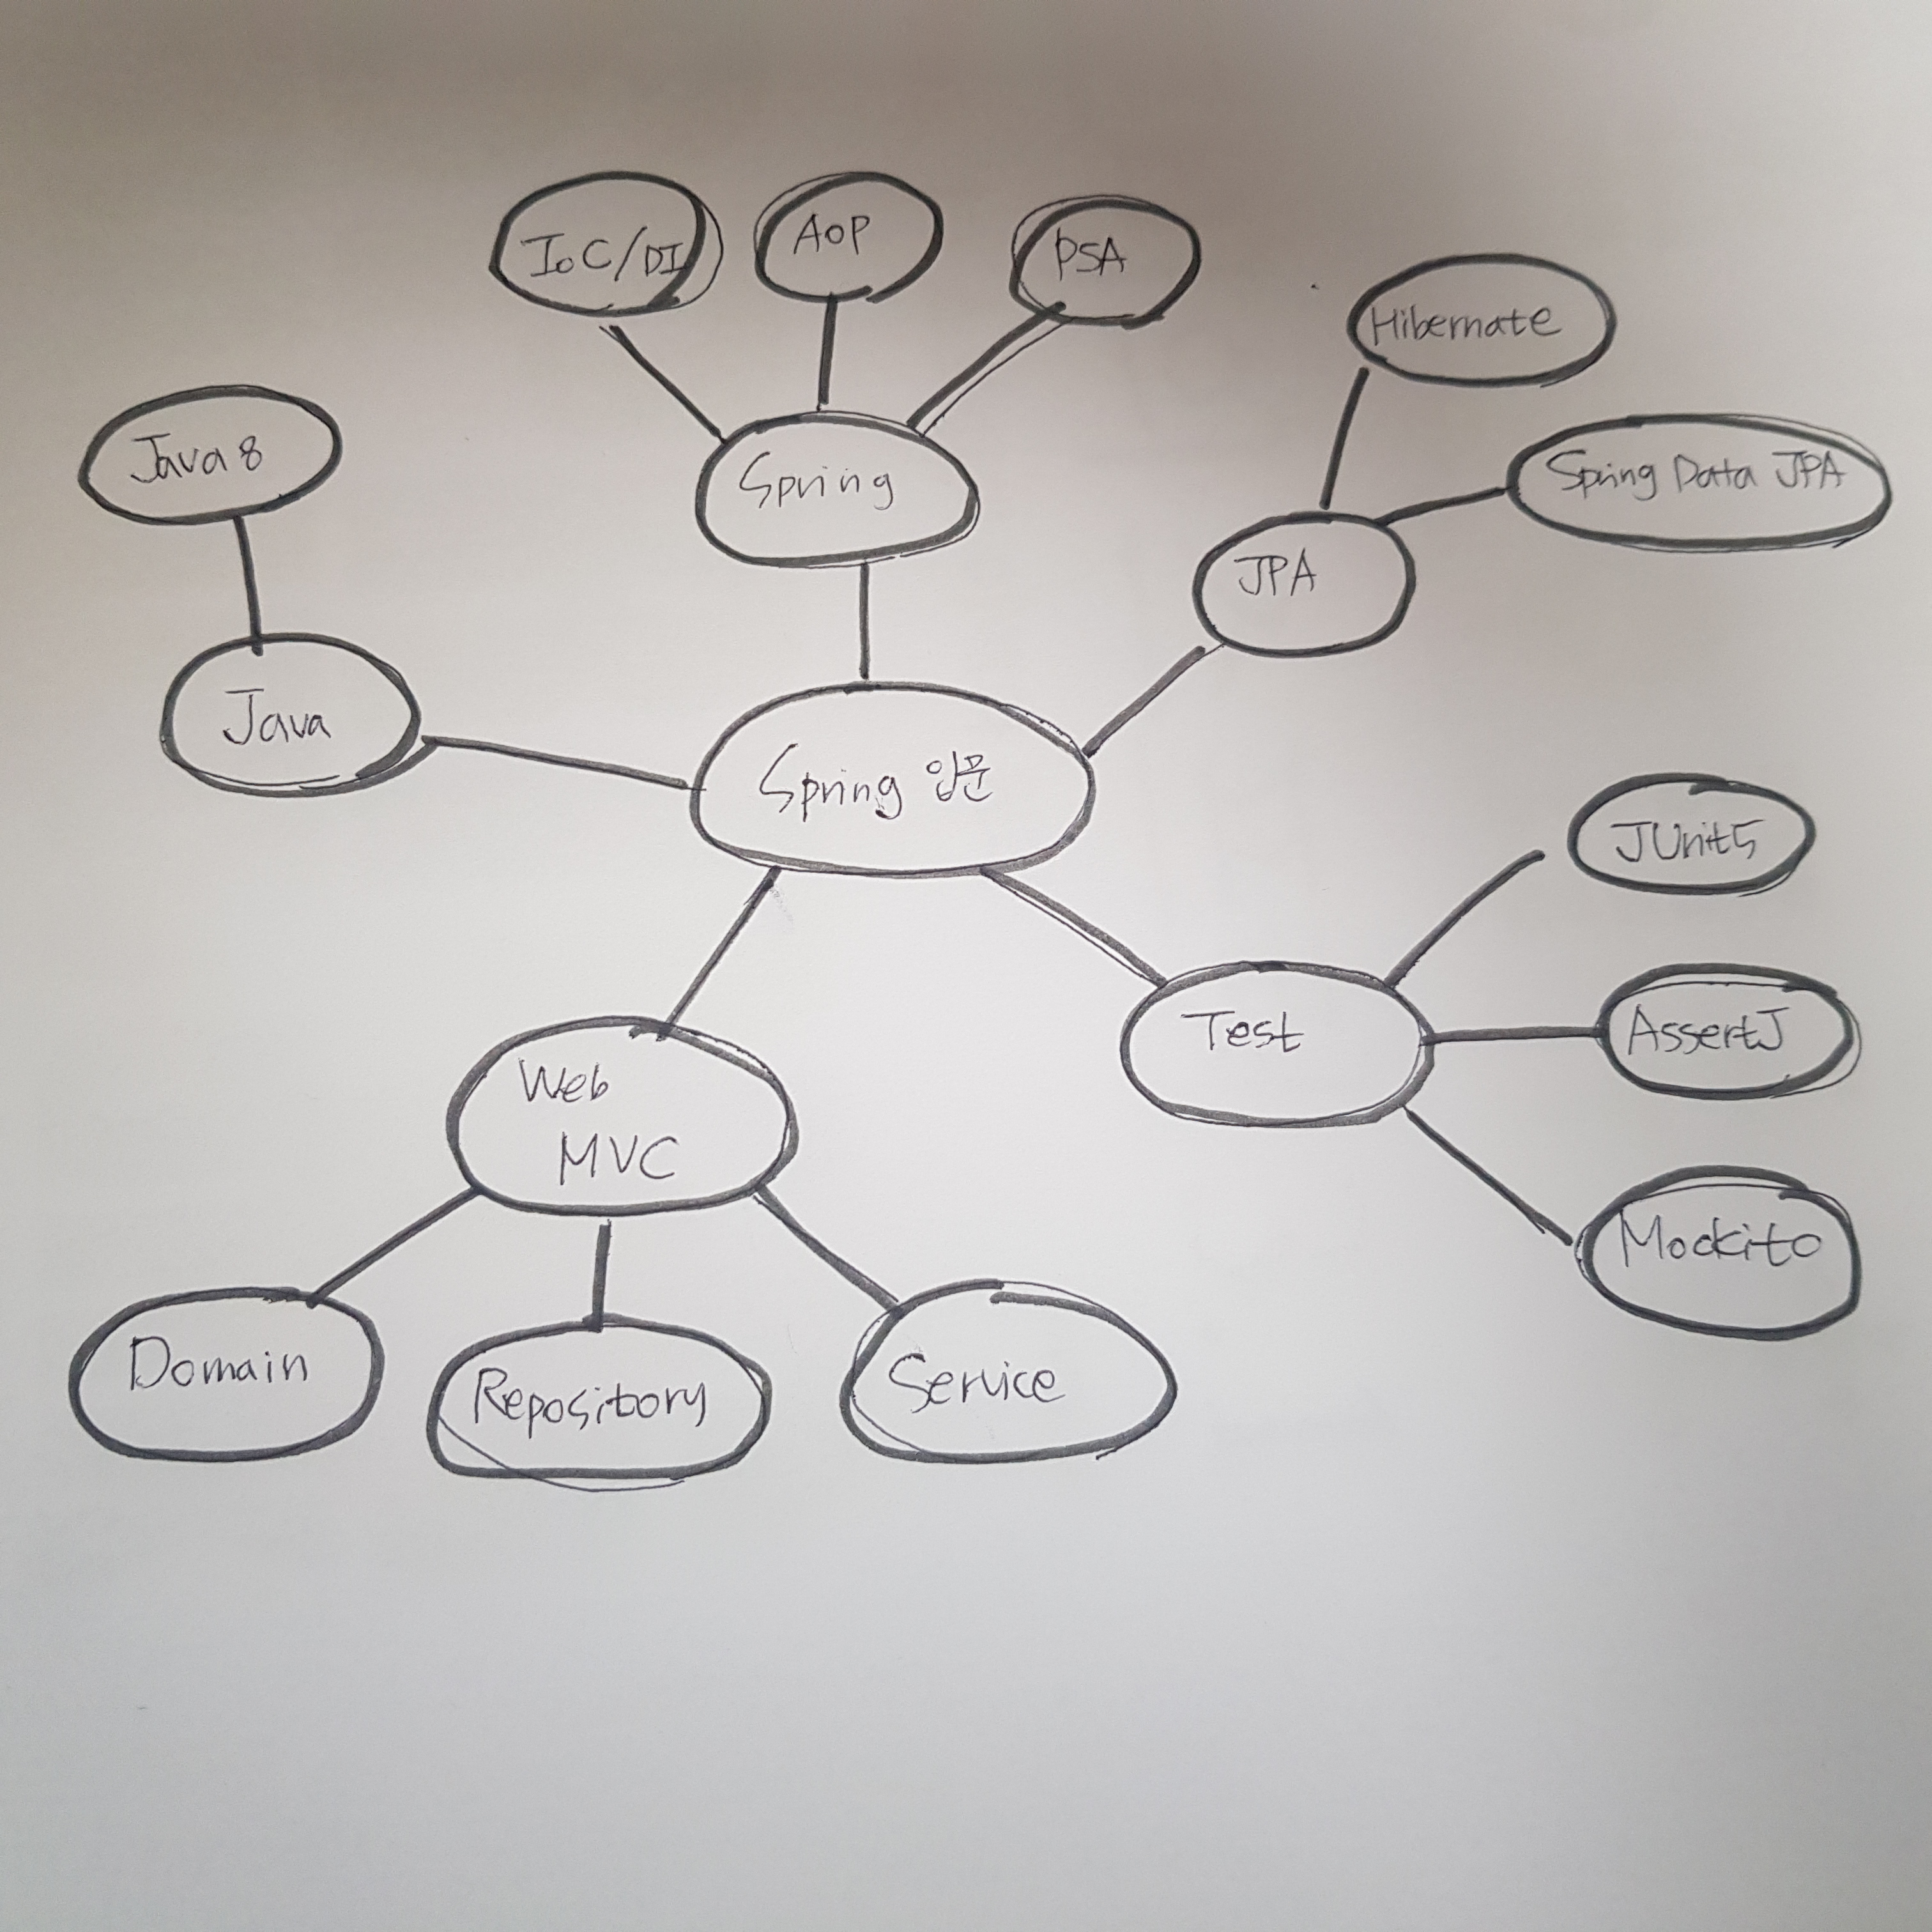 IoC/DI
AOP
PSA
Hibernate
Java 8
Spring
Spring Data JPA
JPA
Java
Spring 입문
JUnit5
Test
AssertJ
Web
MVC
Mockito
Domain
Repository
Service